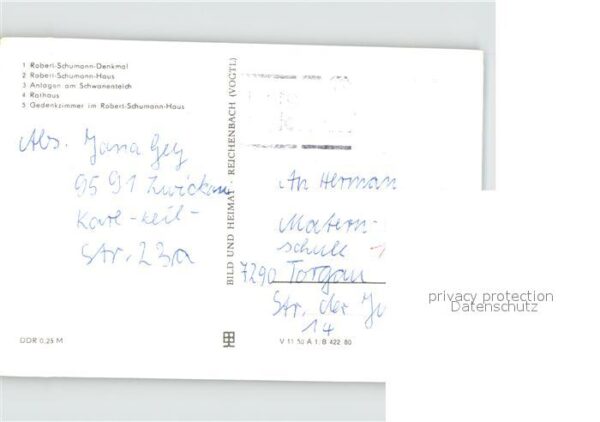 1 Robert-Schumann-Denkmal
2 Robert-Schumann-Haus
3 Anlagen am Schwanenteich
4 Rathaus
5 Gedenkzimmer im Robert-Schumann-Haus
Abs. Jana Gey
9591 Zwickau
Karl-Keil-
Str. 23a
DDR 0,25 M
BILD UND HEIMAT · REICHENBACH (VOGTL)
An Herman
Matern-
schule
7290 Torgau
Str. der Ju
14
V 11 50 A 1/B 422/80
privacy protection
Datenschutz